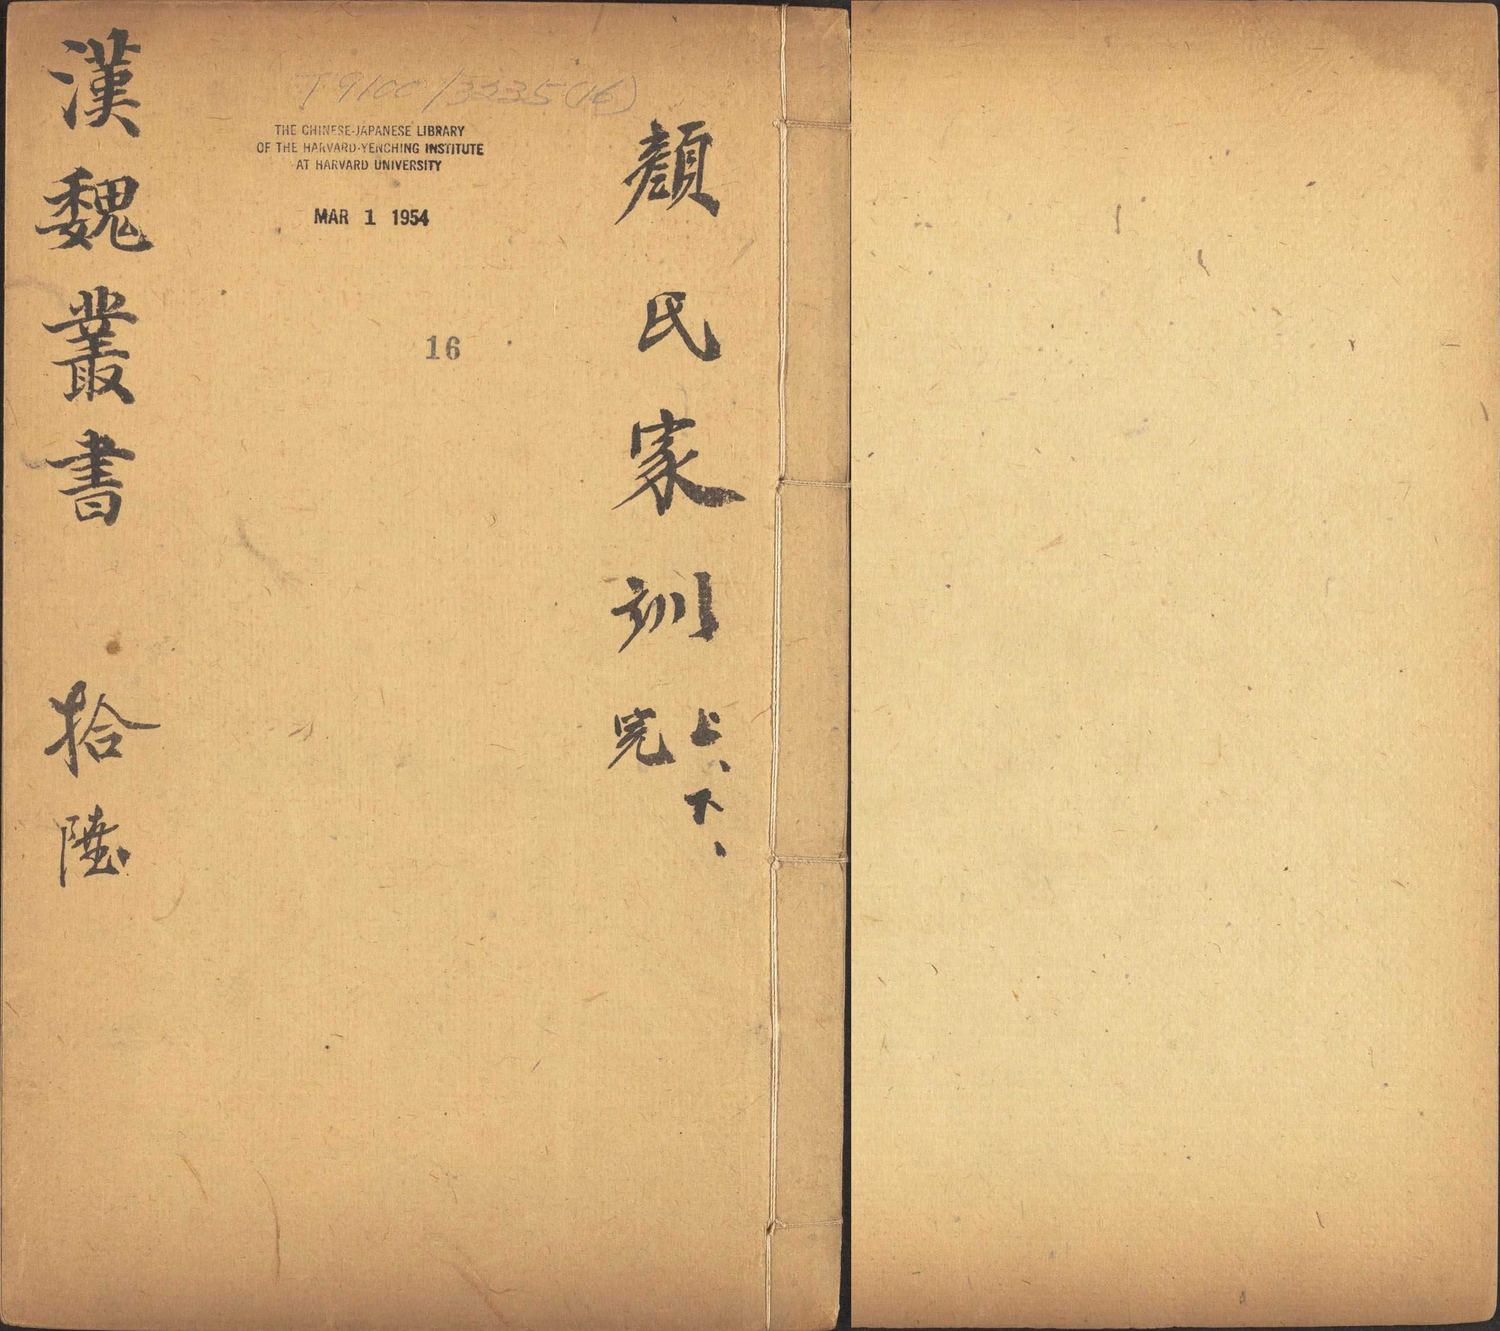 顏氏家訓
上、下、
完
T9100/3235(16)
THE CHINESE-JAPANESE LIBRARY
OF THE HARVARD-YENCHING INSTITUTE
AT HARVARD UNIVERSITY
MAR 1 1954
16
漢魏叢書 拾陸